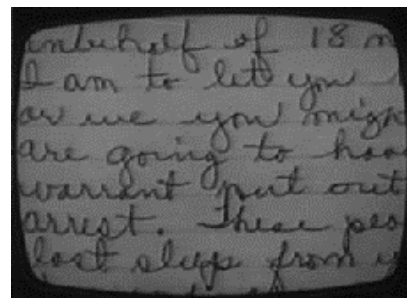 inbehalf of 18 m
I am to let you
or we you migh
are going to hav
warrant put out
arrest. These peo
lost sleep from